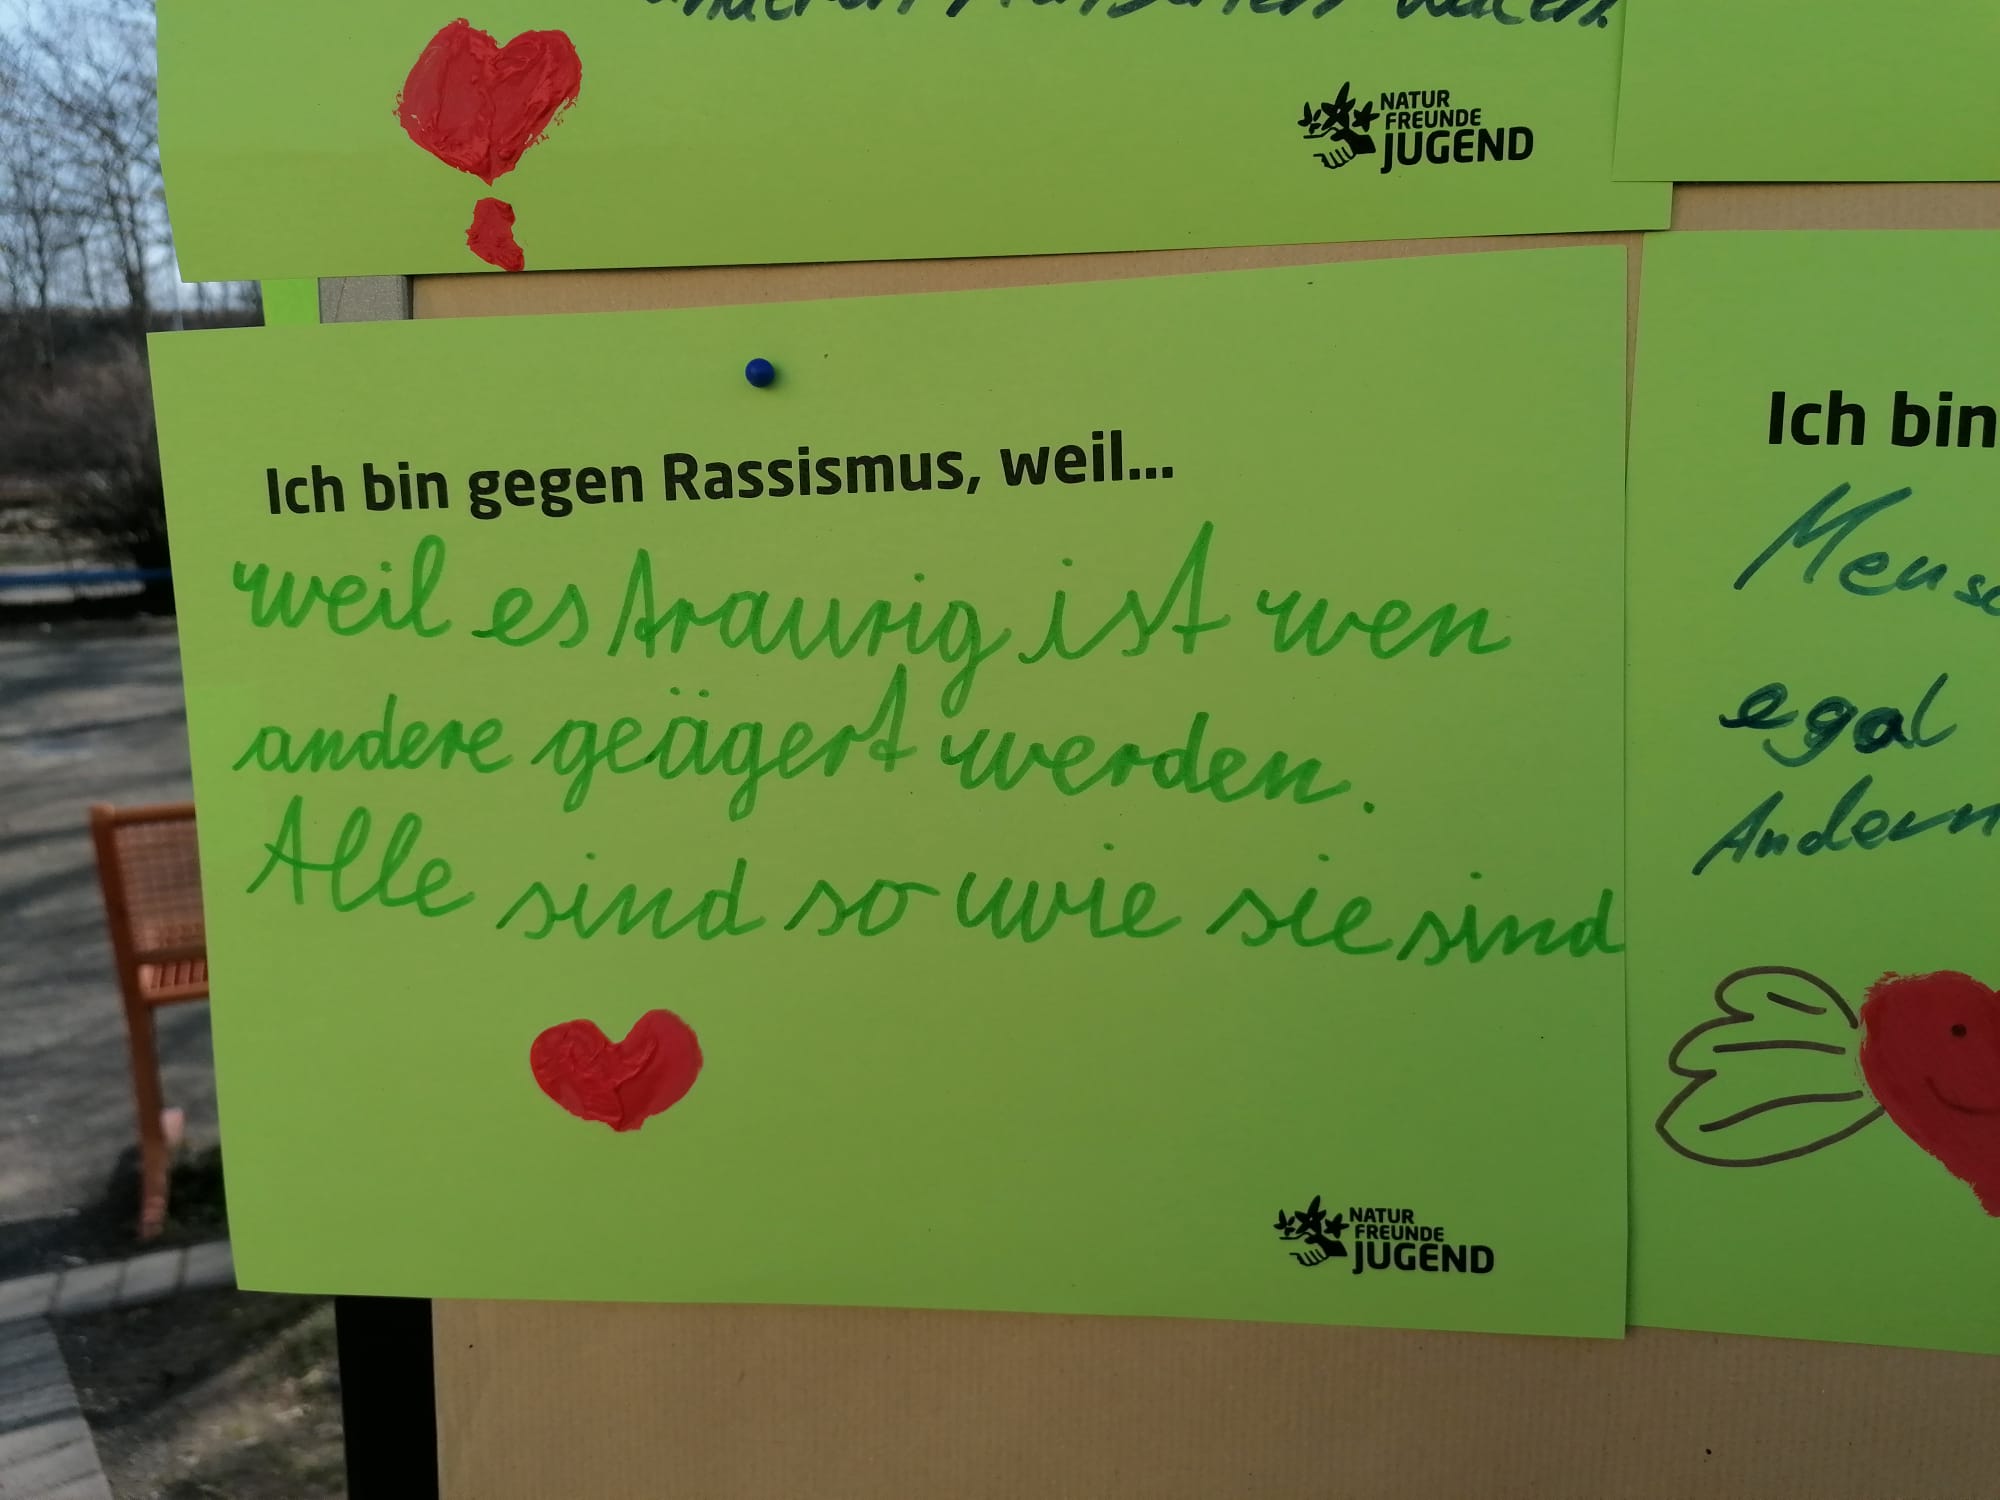 NATUR
FREUNDE
JUGEND
Ich bin gegen Rassismus, weil...
weil es traurig ist wen
andere geägert werden.
Alle sind so wie sie sind
NATUR
FREUNDE
JUGEND
Ich bin
egal
Andern